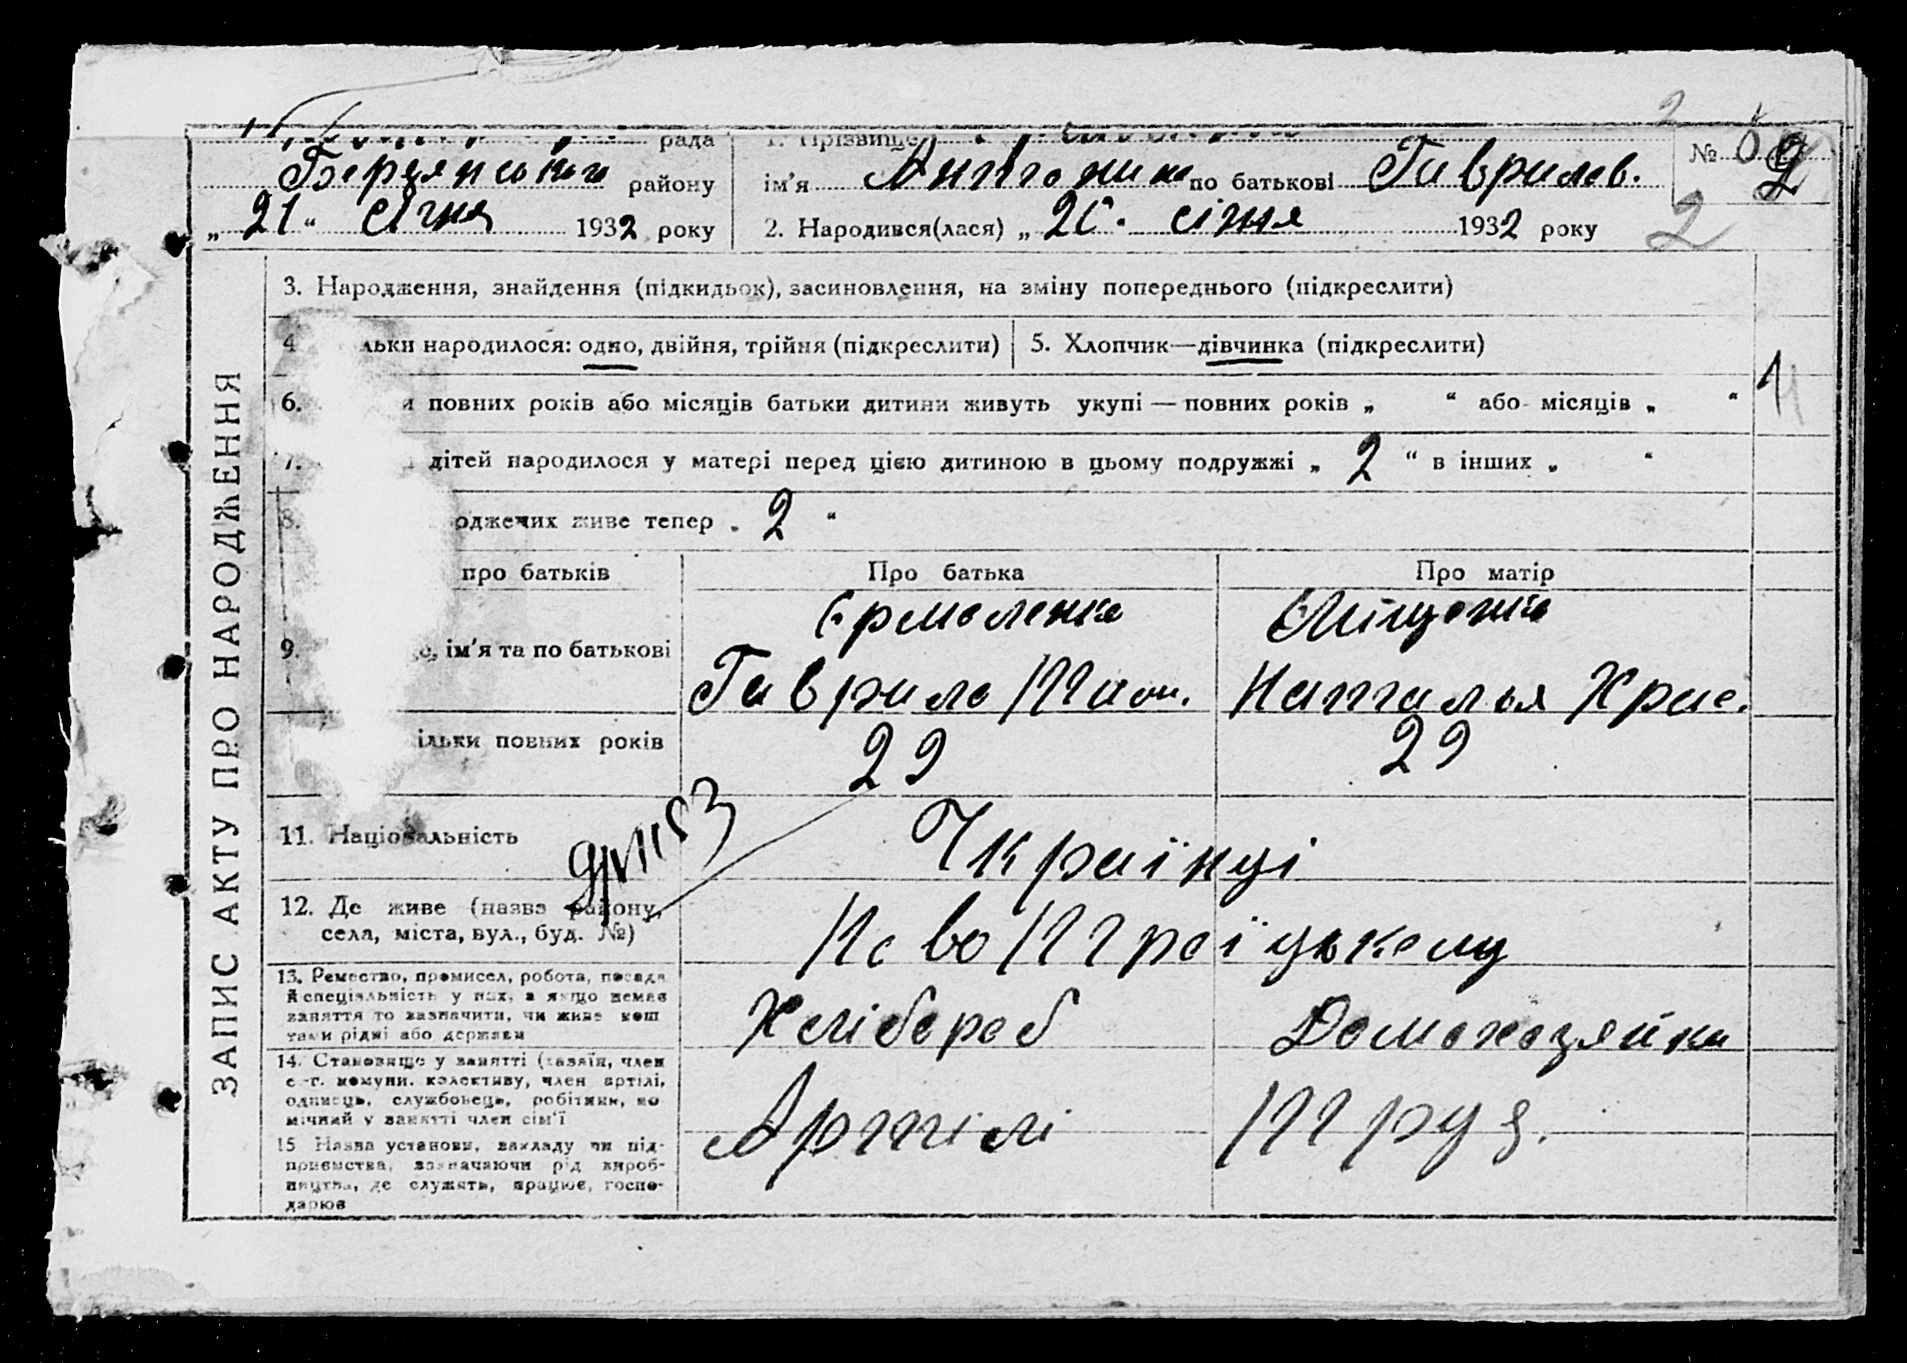 рада
Бердянського району
„ 21 “ січня 1932 року
1. Прізвище
ім’я Антонина по батькові Гаврилов.
2. Народився(лася) „ 20 “ січня 1932 року
№ 2
2
2
ЗАПИС АКТУ ПРО НАРОДЖЕННЯ
3. Народження, знайдення (підкидьок), засиновлення, на зміну попереднього (підкреслити)
4 льки народилося: одно, двійня, трійня (підкреслити)
5. Хлопчик—дівчинка (підкреслити)
6. и повних років або місяців батьки дитини живуть укупі — повних років „ “ або місяців „ “
7. дітей народилося у матері перед цією дитиною в цьому подружжі „ 2 “ в інших „ “
8. роджених живе тепер „ 2 “
про батьків Про батька Про матір
9. е, ім’я та по батькові
Єрмоленко
Гаврило
Міщенко
Наталья
ільки повних років 29 29
11. Національність Українці
12. Де живе (назва району, села, міста, вул., буд. №) Ново Троїцькому
13. Ремество, промисел, робота, посада
й спеціяльність у них, а якщо немає
заняття то зазначити, чи живе кош
тами рідні або держави
Хлібороб Домохозяйка
14. Становище у занятті (хазяїн, член
с.-г. комуни, колективу, член артілі,
одинець, службовець, робітник, по
мічний у занятті член сім’ї
Артілі Труд.
15 Назва установи, закладу чи під-
приємства, зазначаючи рід вироб-
ництва, де служить, працює, госпо-
дарює